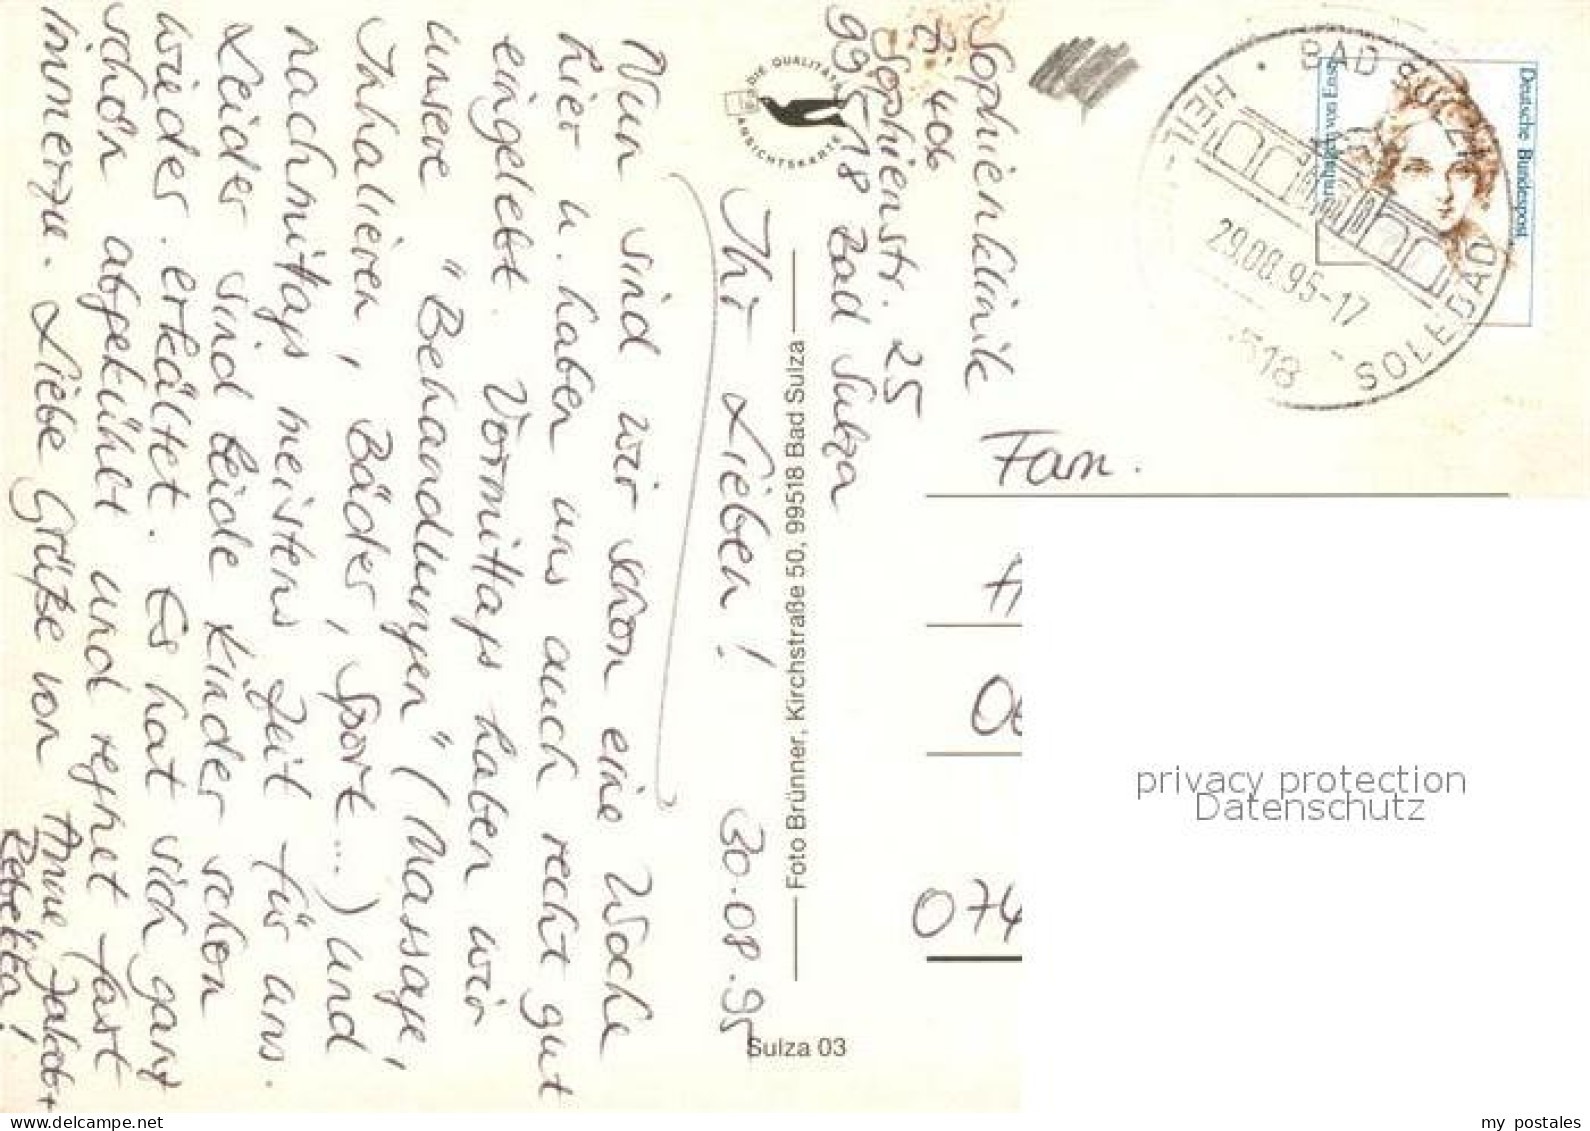 Sophienklinik
Z. 406
Sophienstr. 25
99518 Bad Sulza
Ihr Lieben! 30.08.95
Nun sind wir schon eine Woche
hier u. haben uns auch recht gut
eingelebt. Vormittags haben wir
unsere "Behandlungen" (Massage,
Inhalieren, Bäder, Sport...) und
nachmittags meistens Zeit für uns.
Leider sind beide Kinder schon
wieder erkältet. Es hat sich ganz
schön abgekühlt und regnet fast
immerzu. Liebe Grüße von Anne, Jakob +
Rebekka!
DIE QUALITÄTS
ANSICHTSKARTE
Foto Brünner, Kirchstraße 50, 99518 Bad Sulza
Sulza 03
Deutsche Bundespost
BAD SULZA
HEIL-
29.08.95-17
518
SOLEBAD
Fam.
074
privacy protection
Datenschutz
my postales